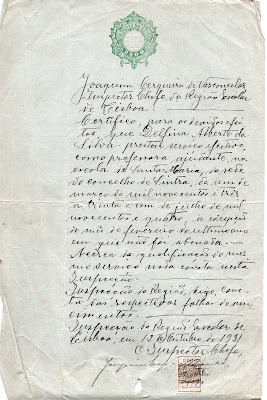 Joaquim Cerqueira de Vasconcelos
Inspector Chefe da Região Escolar
de Lisboa:
Certifico, para os devidos efei-
tos, que Delfina Alberto da
Silva prestou serviço efectivo,
como professora ajudante, na
escola de Santa Maria, da sede
do concelho de Sintra, de um de
março de mil novecentos e três
a trinta e um de julho de mil
novecentos e quatro, a excepção
do mês de fevereiro do ultimo ano
em que não foi abonada.
Acêrca da qualificação do mes
mo serviço nada consta nesta
Inspecção.
Inspecção da Região, digo, cons-
ta das respectivas folhas de ven
cimentos.
Inspecção da Região Escolar de
Lisboa, em 13 de Outubro de 1931
O Inspector Chefe,